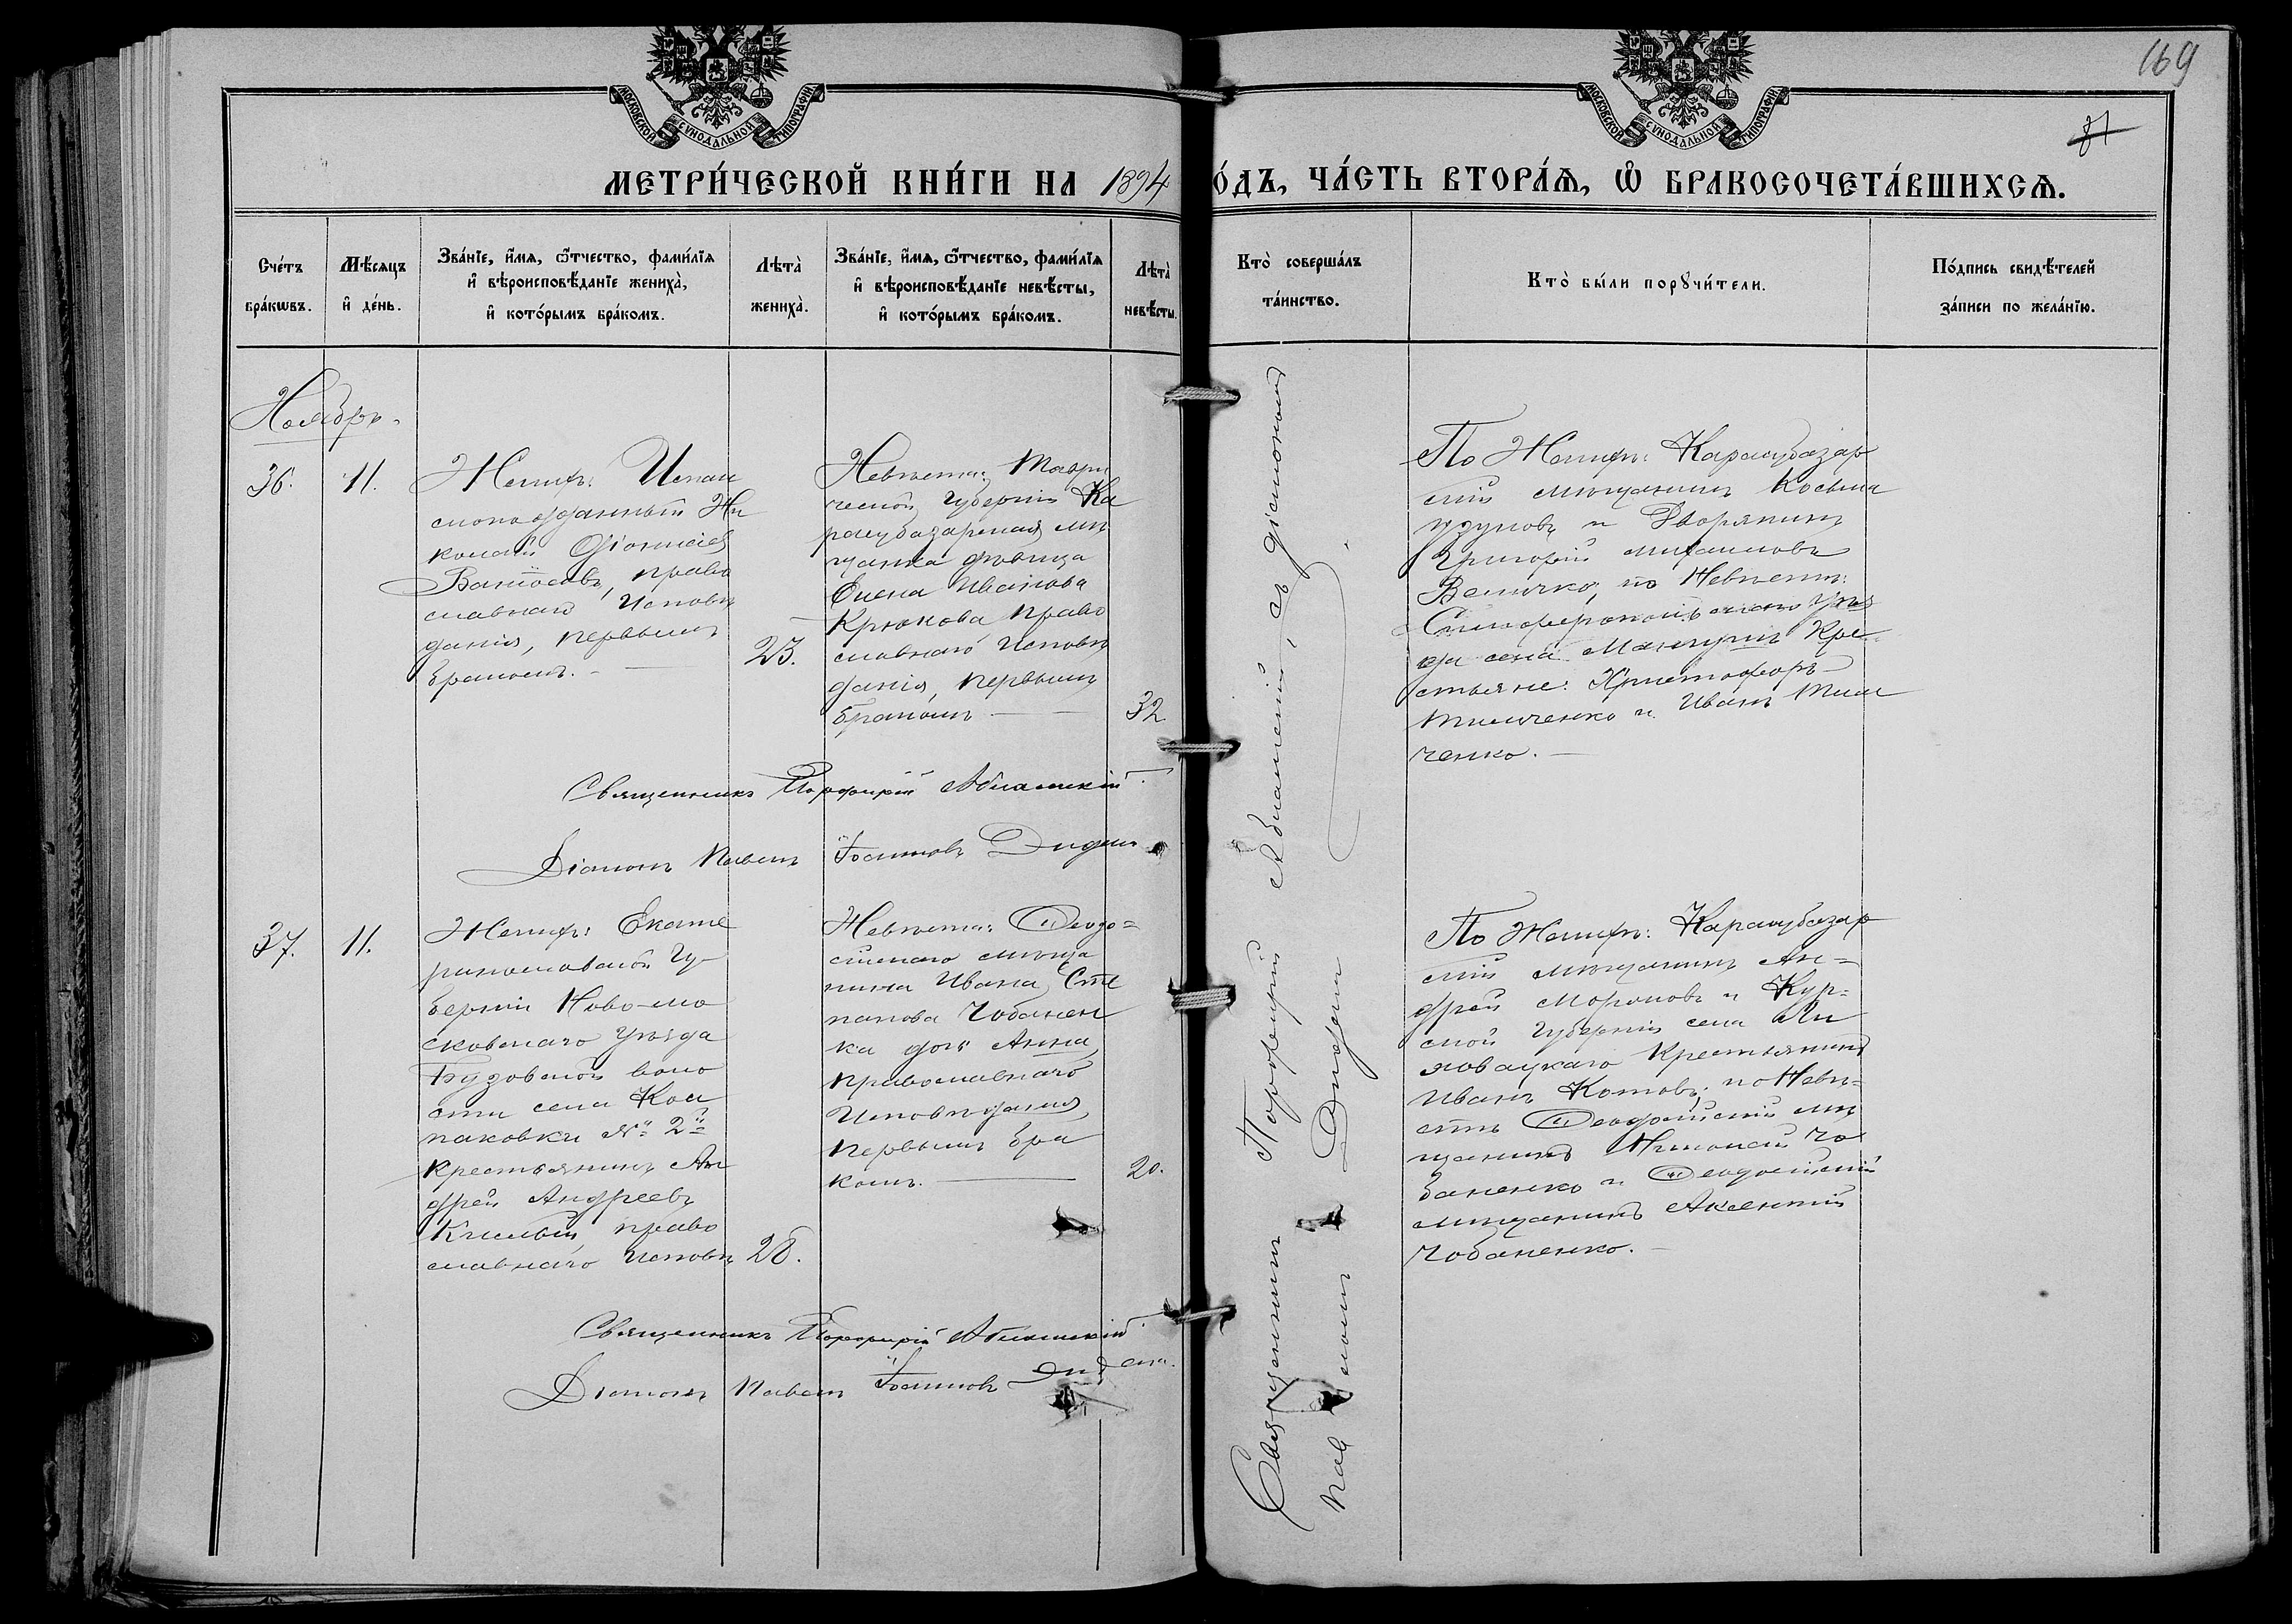 169
81
МОСКОВСКОЙ СѴНОДАЛЬНОЙ ТИПОГРАФІИ
МОСКОВСКОЙ СѴНОДАЛЬНОЙ ТИПОГРАФІИ
МЕТРИ́ЧЕСКОЙ КНИ́ГИ НА 1894
О́ДЪ, ЧА́СТЬ ВТОРА́Ѧ, Ѡ҆ БРАКОСОЧЕТА́ВШИХСѦ.
Сче́тъ
бра́кѡвъ.
Мѣ́сяцъ
и҆ де́нь.
Зва́нїе, и҆́мѧ, ѻ҆́тчество, фами́лїѧ
и҆ вѣроисповѣ́данїе жениха̀,
и҆ кото́рымъ бра́комъ.
Лѣта̀
жениха̀.
Зва́нїе, и҆́мѧ, ѻ҆́тчество, фами́лїѧ
и҆ вѣроисповѣ́данїе невѣ́сты,
и҆ кото́рымъ бра́комъ.
Лѣта̀
невѣ́сты.
Кто̀ соверша́лъ
та́инство.
Кто̀ бы́ли порꙋчи́тели.
По́дпись свидѣ́телей
за́писи по жела́нїю.
Ноябрь.
36.
11.
Женихъ: Испан
скоподданный Ни
колай
право
славнаго Исповѣ
данія, первымъ
бракомъ.
23.
Невѣста: Таври
ческой Губерніи Ка
расубазарская мѣ
щанка дѣвица
Елена Иванова
Крюкова право
славнаго Исповѣ
данія, первымъ
бракомъ
32
По Женихѣ: Карасубазар
скій мѣщанинъ Косьма
Узуновъ и Дворянинъ
Григорій Михаиловъ
Величко, по Невѣстѣ:
Симферопольскаго Уѣз
да села Мангушъ Кре
стьяне: Христофоръ
Тимченко и Иванъ Тим
ченко.
Священникъ Порфирій
Діаконъ Павелъ Іоанновъ
37.
11.
Женихъ: Екате
ринославской Гу
берніи Ново-мо
сковскаго Уѣзда
Бузовской воло
сти села Кол
паковки № 2й
Крестьянинъ Ан
дрей Андреевъ
право
славнаго Исповѣ
28.
Невѣста: Ѳеодо=
сійскаго мѣща
нина Ивана Сте
панова Чобанен
ка дочь Анна,
православнаго
Исповѣданія,
первымъ бра
комъ.
20.
По Женихѣ: Карасубазар
скій мѣщанинъ Ан=
дрей Мороковъ и Кур=
ской Губерніи села
Крестьянинъ
Иванъ Котовъ; по Невѣ=
стѣ Ѳеодосійскій мѣ
щанинъ Чо
баненко и Ѳеодосійскій
мѣщанинъ Аксентій
Чобаненко.
Священникъ Порфирій
Діаконъ Павелъ Іоанновъ
Священникъ Порфирій съ діакономъ